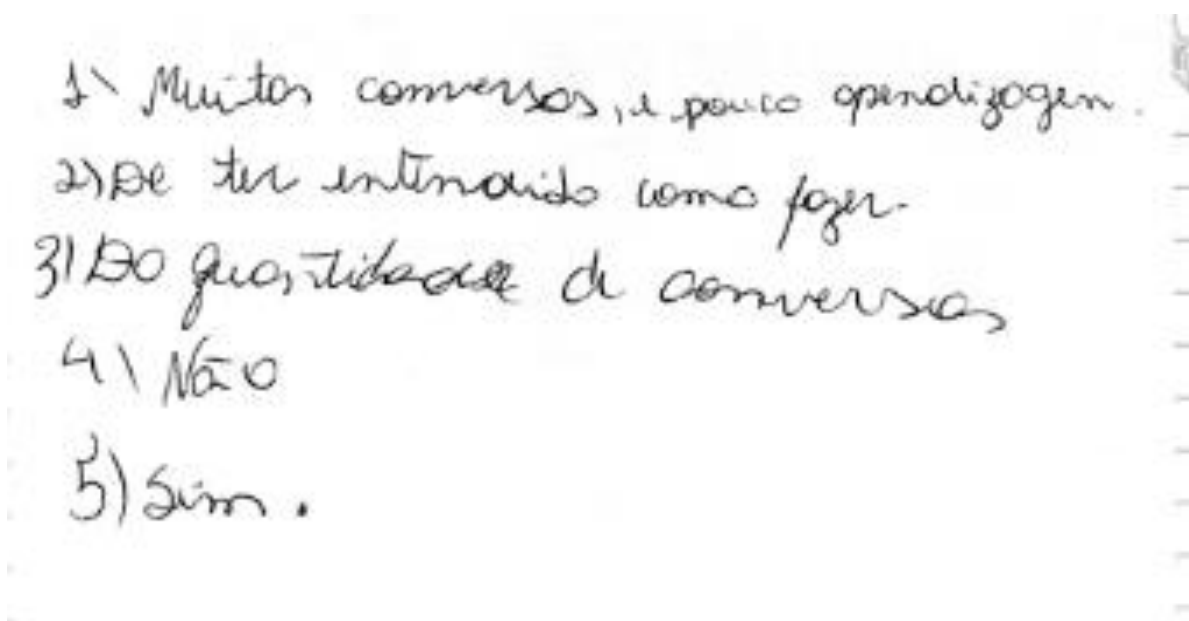 1) Muitas conversas, e pouco aprendizagem.
2) De ter entendido como fazer.
3) Da quantidade de conversas
4) Não
5) Sim.